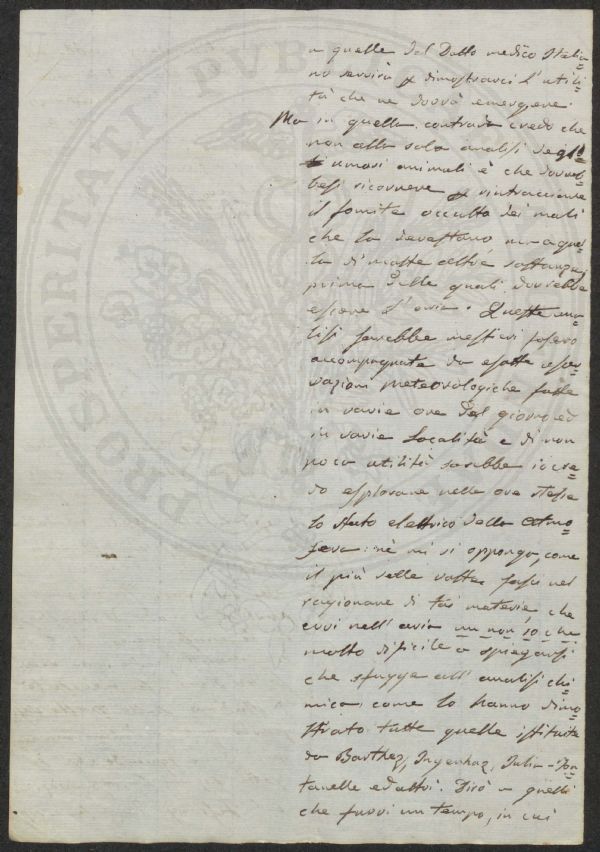 a quelle del Dotto medico Italia=
no servirà p dimostrarci l'utili=
tà che ne dovrà emergere.
Ma in quella contrada credo che
non alla sola analisi degli
umori animali è che dovreb=
besi ricorrere p rintracciare
il fomite occulto dei mali
che la devastano, ma a quel=
la di molte altre sostanze,
prima delle quali dovrebbe
essere l'aria. Queste ana=
lisi sarebbe mestieri fossero
accompagnate da esatte osser=
vazioni meteorologiche fatte
in varie ore del giorno ed
in varie località e di non
poca utilità sarebbe io cre=
do esplorare nelle ore stesse
lo stato elettrico della atmo=
sfera: nè mi si opponga, come
il più delle volte fassi nel
ragionare di tai materie, che
evvi nell'aria un non so che
molto difficile a spiegarsi
che sfugge all'analisi chi=
mica, come lo hanno dimo=
strato tutte quelle istituite
da Barthez, Ingenhaz, Julia-Fon=
tanelle ed altri. Dirò a quelli
che fuvvi un tempo, in cui
PROSPERITATI PVBLI